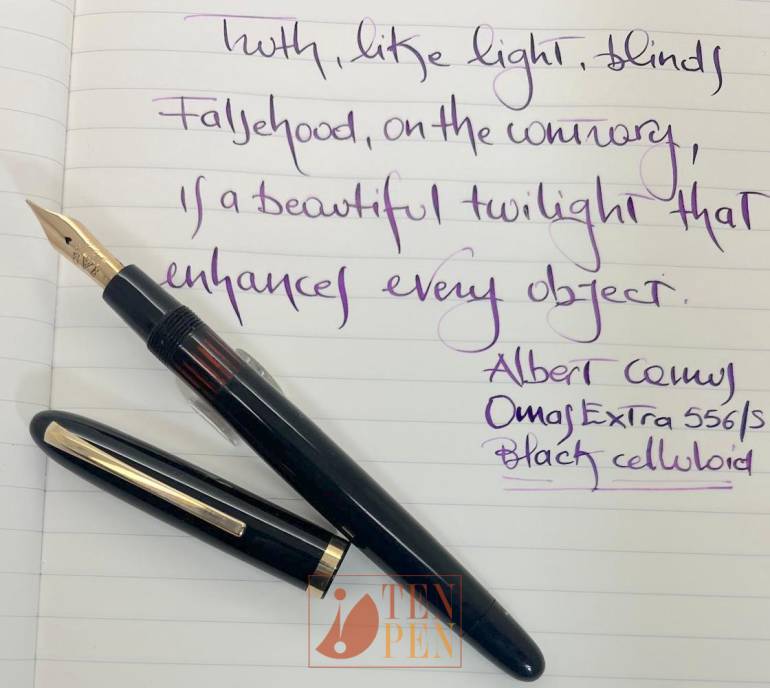 Truth, like light, blinds
Falsehood, on the contrary,
is a beautiful twilight that
enhances every object.
Albert Camus
Omas Extra 556/S
Black celluloid
TEN
PEN